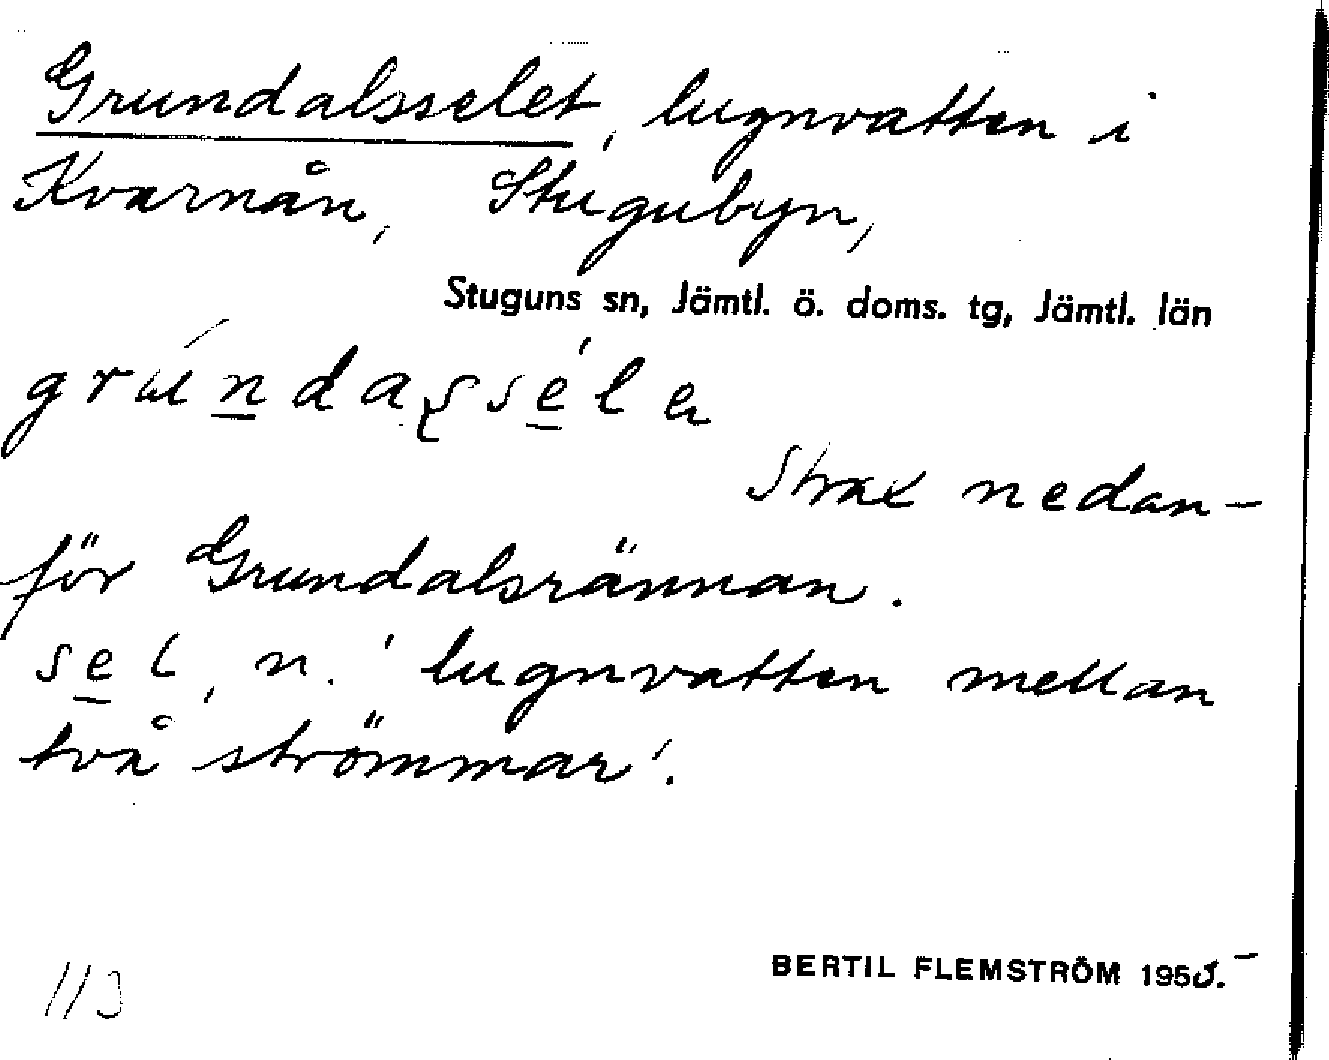 Grundalsselet, lugnvatten i
Kvarnån, Stugubyn,
Stuguns sn, Jämtl. ö. doms. tg, Jämtl. län
Strax nedan-
för Grundalsrännan.
sel, n. 'lugnvatten mellan
två strömmar'.
BERTIL FLEMSTRÖM 1955.
113